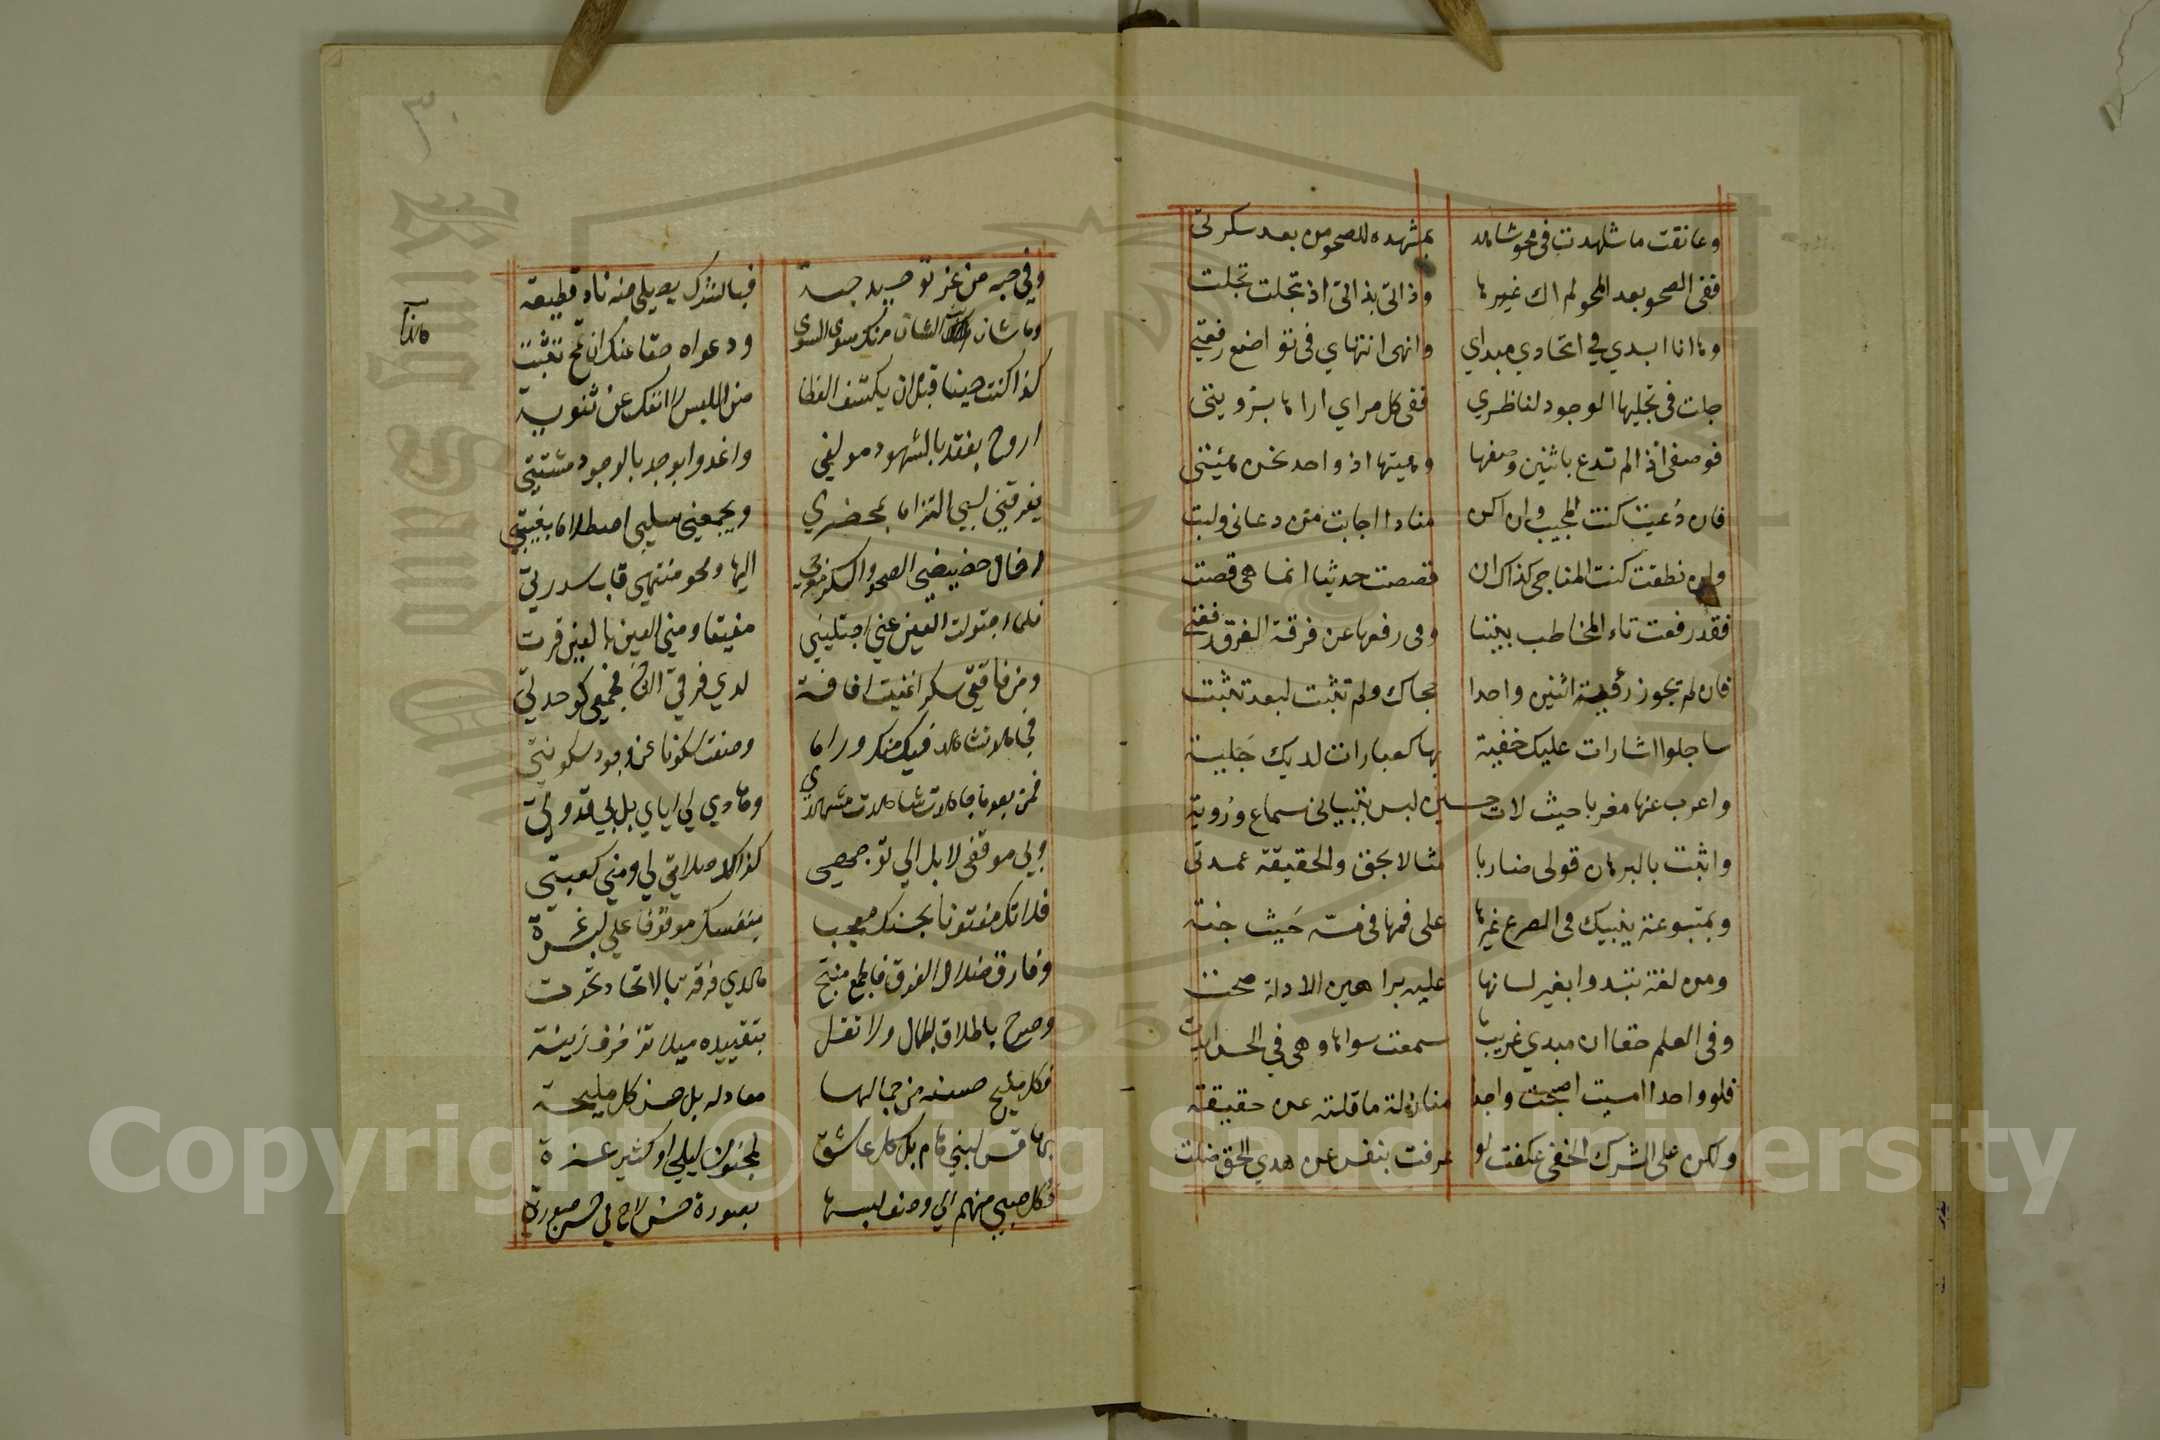 وعانقت ما شاهدت فى محو شاهد بمشهده للصحو من بعد سكرتى
ففى الصحو بعد المحو لم اك غيرها وذاتى بذاتى اذ تجلت تجلت
وها انا ابدي في اتحادي مبداي وانهى انتهاي فى تواضع رفعتي
جلت فى تجليها الوجود لناظري ففى كل مراي اراها بروينى
فوصفى اذ لم تدع باثنين وصفها وهيئتها اذ واحد نحن هيئتى
فان دُعيت كنت المجيب وان اكن منادا اجابت من دعانى ولبت
وان نطقت كنت المناجى كذاك ان قصصت حديثا انما هى قصت
فقد رفعت تاء المخاطب بيننا وفى رفعها عن فرقة الفرق رفعتي
فان لم يجوز رؤية اثنين واحدا حجاك ولم تثبت لبعد تثبت
ساجلوا اشارات عليك خفية بها كعبارات لديك جَلية
واعرب عنها مغربا حيث لات حين لبس بتبيانى سماع ورُوية
واثبت بالبرهان قولى ضاربا مثالا بحق والحقيقة عمدتى
وبمتبوعة ينبيك فى الصرع غيرها على فمها فى مسه حَيث جنة
ومن لغة تبدوا بغير لسانها عليه براهين الادلة صحت
وفى العلم حقا ان مبدي غريب ما سمعت سواها وهى فى الحس ابدت
فلو واحدا امسيت اصبحت واجدا منازلة ما قلته عن حقيقة
ولكن على الشرك الخفى عكفت لو عرفت بنفس عن هدي الحق ضلت
٣٠
وفي حبه من عز توحيد حبه فبالشرك يصلي منه نار قطيعة
وما شان هذا الشان منك سوى السوى ودعواه حقا عنك ان تمح تثبت
هاذا
كذا كنت حينا قبل ان يكشف الغطا من اللبس لا انفك عن ثنوية
اروح بفقد بالشهود مولفي واغدوا بوجد بالوجود مشتتي
يفرقني لبي التزاما بمحضري ويجمعني سلبي اصطلاما بغيبتي
اخال حضيضي الصحو والسكر معرجي اليها ومحو منتهى قاب سدرتي
فلما جلوت الغين عني اجتليتني مفيقا ومني العين بالعين قرت
ومن فاقتي سكرا غنيت افاقة لدي فرقي الثان فجمعي كوحدتي
فجاهد تشاهد فيك منك وراما وصفت سكونا عن وجود سكونتي
فمن بعد ما جاهدت شاهدت مشهدي وهادي لي اياي بل بي قدوتي
وبي موقفي لا بل الي توجهي كذاك صلاتي لي ومني كعبتي
فلا تك مفتونا بحسنك معجب بنفسك موقوفا على لبس غرة
وفارق ضلال الفرق فالجمع منتج هدي فرقة بالاتحاد تحدت
وصرح باطلاق الجمال ولا تقل بتقييده ميلا لزخرف زينة
فكل مليح حسنه من جمالها معار له بل حسن كل مليحة
بها قيس لبني هام بل كل عاشق لمجنون ليلي او كثير عزة
فكل صبي منهم الي وصف لبسها بصورة حسن لاح في حسن صورة